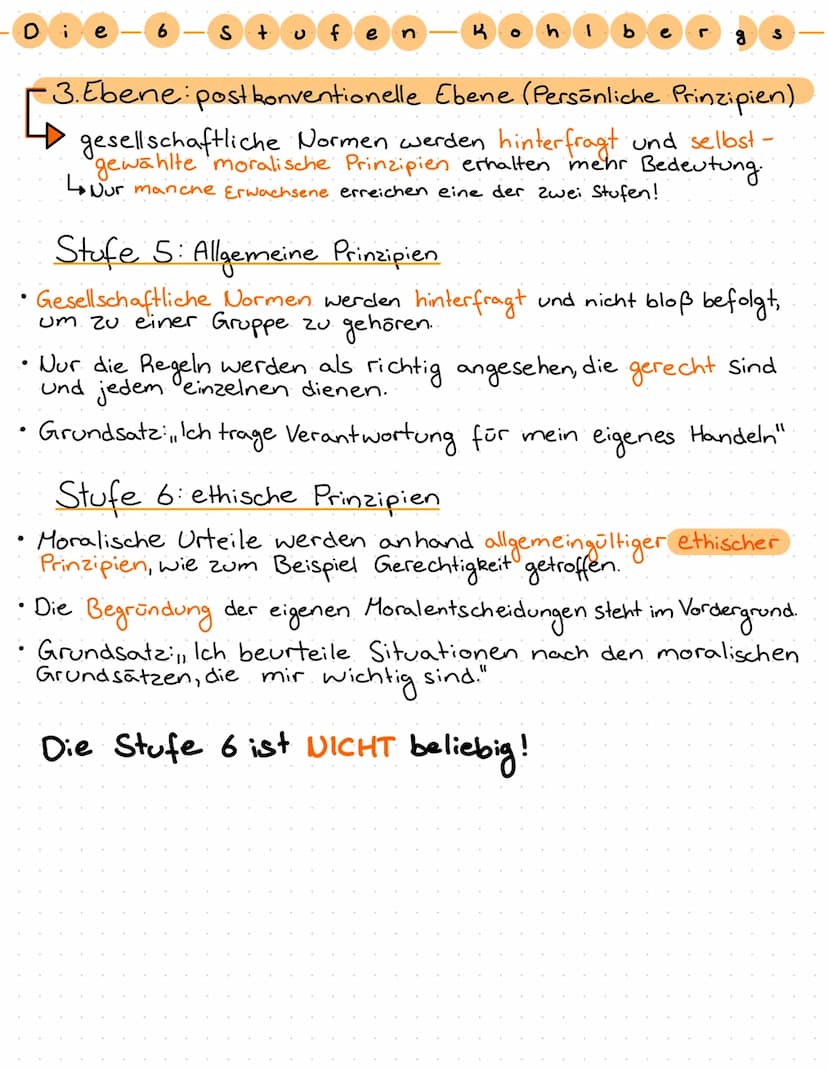 Die 6 Stufen Kohlbergs
3. Ebene: postkonventionelle Ebene (Persönliche Prinzipien)
gesellschaftliche Normen werden hinterfragt und selbst-
gewählte moralische Prinzipien erhalten mehr Bedeutung.
↳ Nur manche Erwachsene erreichen eine der zwei Stufen!
Stufe 5: Allgemeine Prinzipien
• Gesellschaftliche Normen werden hinterfragt und nicht bloß befolgt,
um zu einer Gruppe zu gehören.
• Nur die Regeln werden als richtig angesehen, die gerecht sind
und jedem einzelnen dienen.
• Grundsatz: „Ich trage Verantwortung für mein eigenes Handeln"
Stufe 6: ethische Prinzipien
• Moralische Urteile werden anhand allgemeingültiger ethischer
Prinzipien, wie zum Beispiel Gerechtigkeit getroffen.
• Die Begründung der eigenen Moralentscheidungen steht im Vordergrund.
• Grundsatz: „Ich beurteile Situationen nach den moralischen
Grundsätzen, die mir wichtig sind."
Die Stufe 6 ist NICHT beliebig!